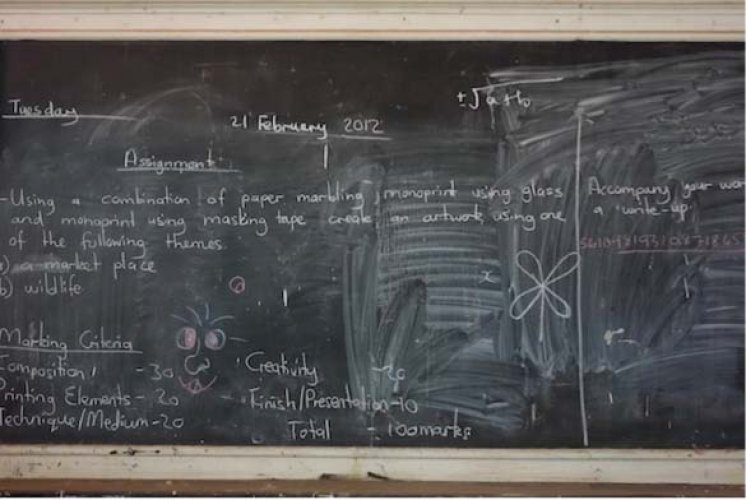 Tuesday
21 February 2012
Assignment
-Using a combination of paper marbling, monoprint using glass
and monoprint using masking tape create an artwork using one
of the following themes
a) a market place
b) wildlife
Marking Criteria
Composition - 30
Printing Elements - 20
Technique/Medium - 20
Creativity - 20
Finish/Presentation - 10
Total - 100marks
Accompany your
a "write-up"
x